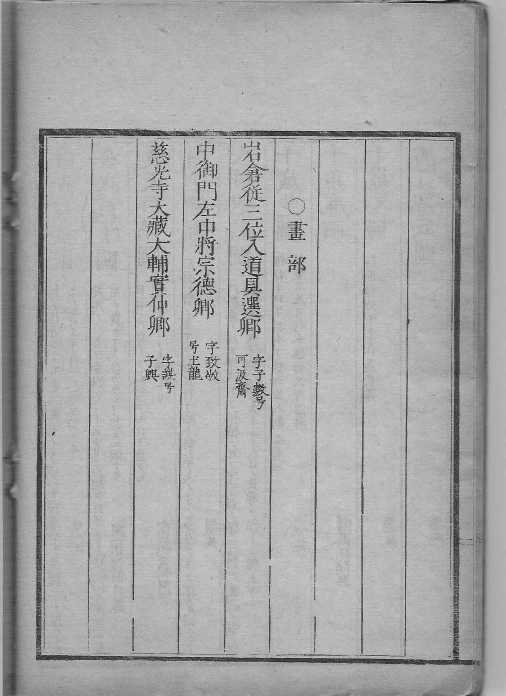 〇畫部
岩倉從三位入道具選卿
字子數号
可汲齋
中御門左中將宗德卿
字致
号士龍
慈光寺大藏大輔實仲卿
字 号
子興